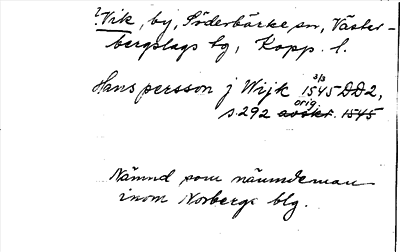 ?Vik, by, Söderbärke sn, Väster-
bergslags bg, Kopp. l.
Hans persson j Wijk 3/3 1545 DD2,
orig.
s. 292 avskr. 1545
Nämnd som nämndeman
inom Norbergs blg.